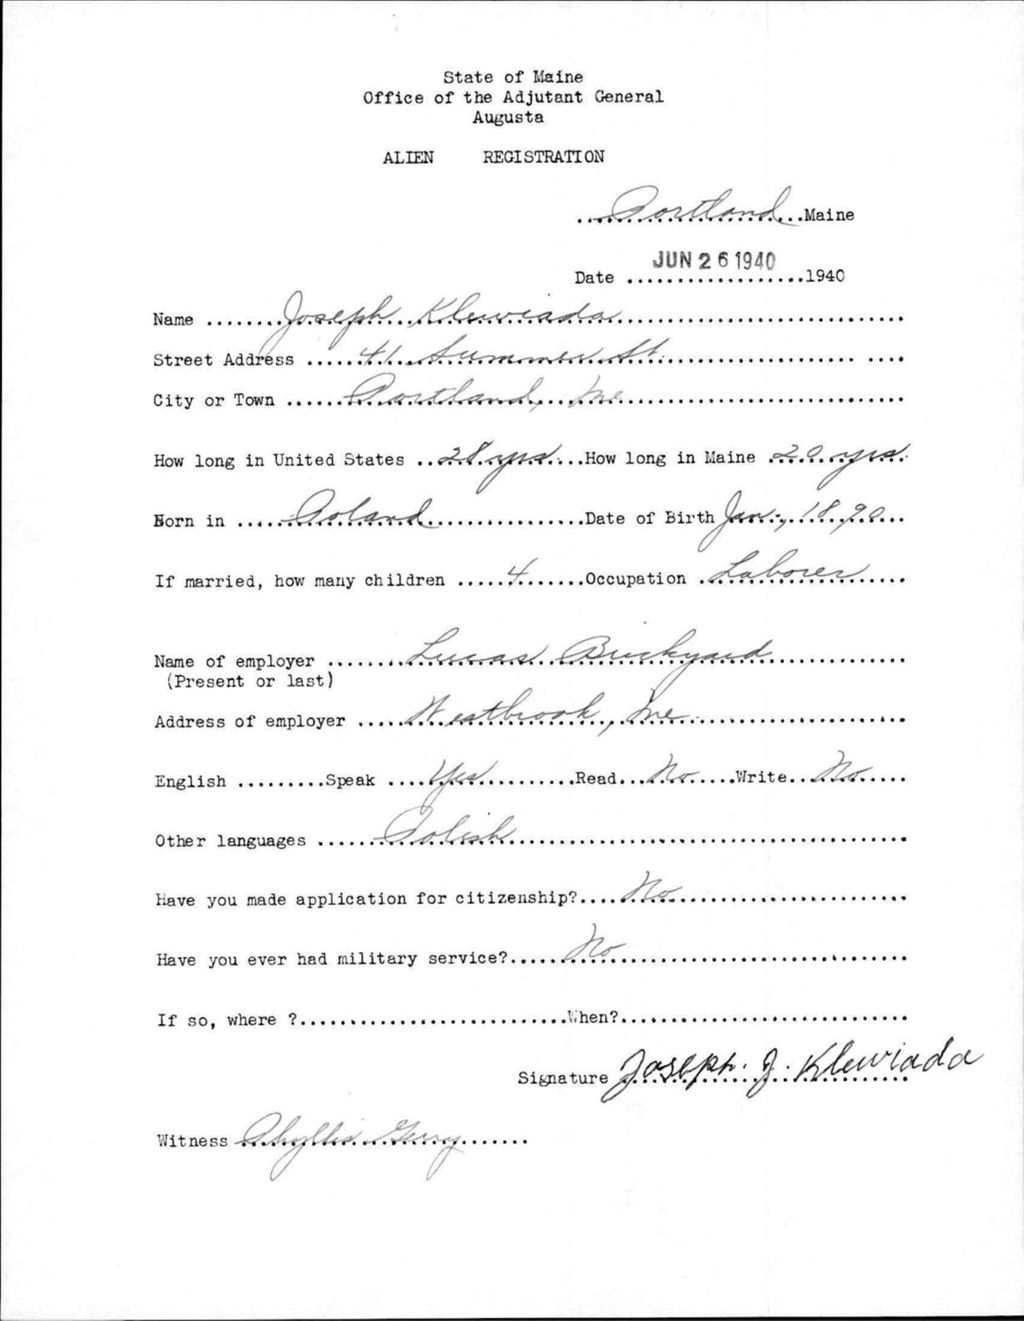 State of Maine
Office of the Adjutant General
Augusta
ALIEN REGISTRATION
Portland Maine
Date JUN 26 1940 1940
Name Joseph Klewiada
Street Address 41 Summer St.
City or Town Portland, Me
How long in United States 28 yrs. How long in Maine 20 yrs.
Born in Poland Date of Birth Jan., 1890
If married, how many children 4 Occupation Laborer
Name of employer Lucas Brickyard
(Present or last)
Address of employer Westbrook, Me.
English Speak Yes Read No Write No
Other languages Polish
Have you made application for citizenship? No
Have you ever had military service? No
If so, where ? When?
Signature Joseph. J. Klewiada
Witness Phyllis Gerry